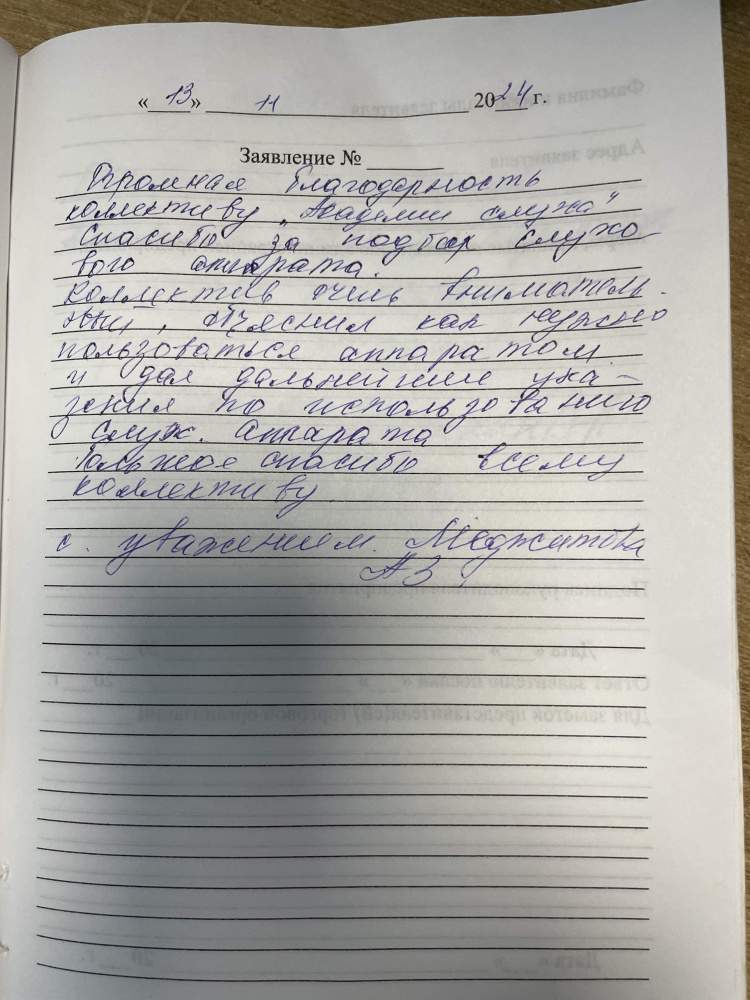 «13» 11 2024 г.
Заявление №
Огромная благодарность
коллективу „Академии слуха"
Спасибо за подбор слухо
вого аппарата.
Коллектив очень вниматель-
ный, объяснил как нужно
пользоваться аппаратом
и дал дальнейшие ука-
зания по использованию
слух. аппарата
Большое спасибо всему
коллективу.
с. уважением. Меджитова
АЗ